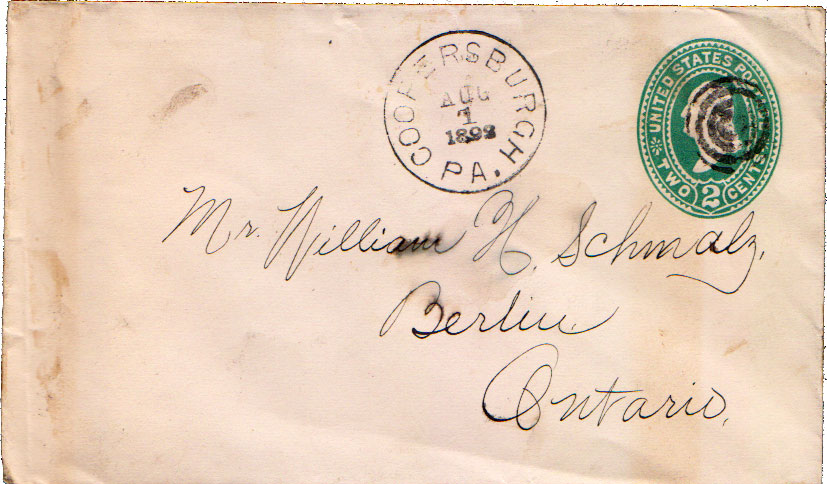 COOPERSBURGH
AUG
1
1892
PA.
UNITED STATES PO
TWO 2 CENTS
Mr. William H. Schmalz,
Berlin
Ontario.